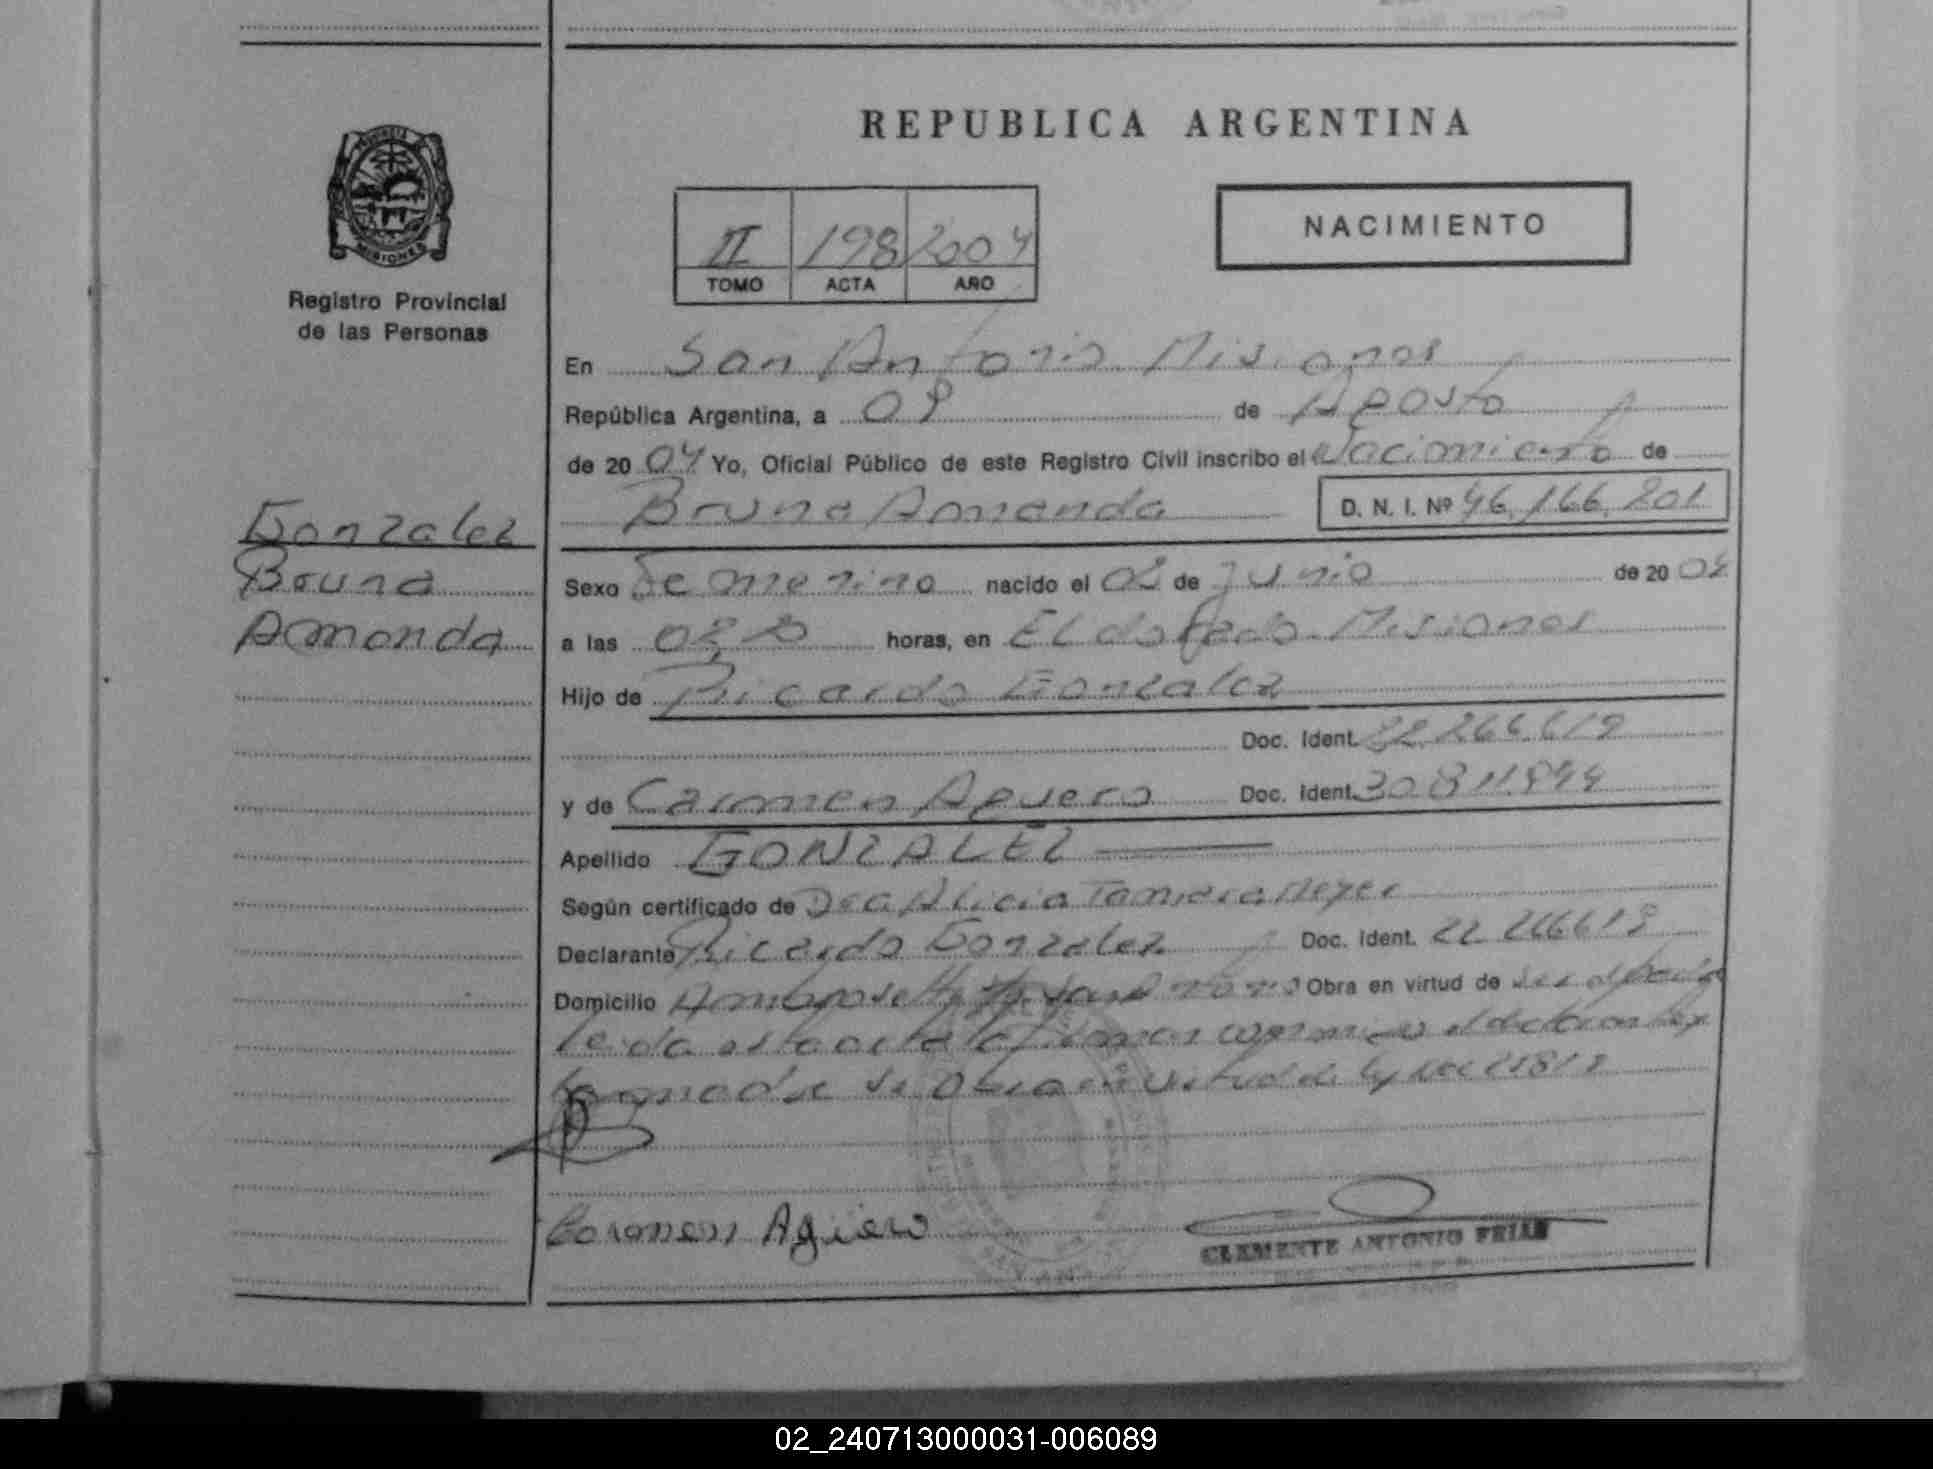 PROVINCIA
MISIONES
Registro Provincial
de las Personas
Gonzalez
Bruna
Amanda
REPUBLICA ARGENTINA
II 198 2004
TOMO ACTA AÑO
NACIMIENTO
En San Antonio Misiones
República Argentina, a 09 de Agosto
de 20 04 Yo, Oficial Público de este Registro Civil inscribo el Nacimiento de
Bruna Amanda D. N. I. Nº 46.166.201
Sexo Femenino nacido el 02 de Junio de 20 04
a las horas, en Eldorado Misiones
Hijo de Ricardo Gonzalez
Doc. Ident. 22.266.619
y de Carmen Aguero Doc. Ident. 30.811.944
Apellido GONZALEZ
Según certificado de Dra Alicia Tamara Meyer
Declarante Ricardo Gonzalez Doc. Ident.
Domicilio San Antonio Obra en virtud de
leida esta acta firman el declarante
madre se obra en virtud de ley
Carmen Agüero
CLEMENTE ANTONIO FRIAS
02_240713000031-006089